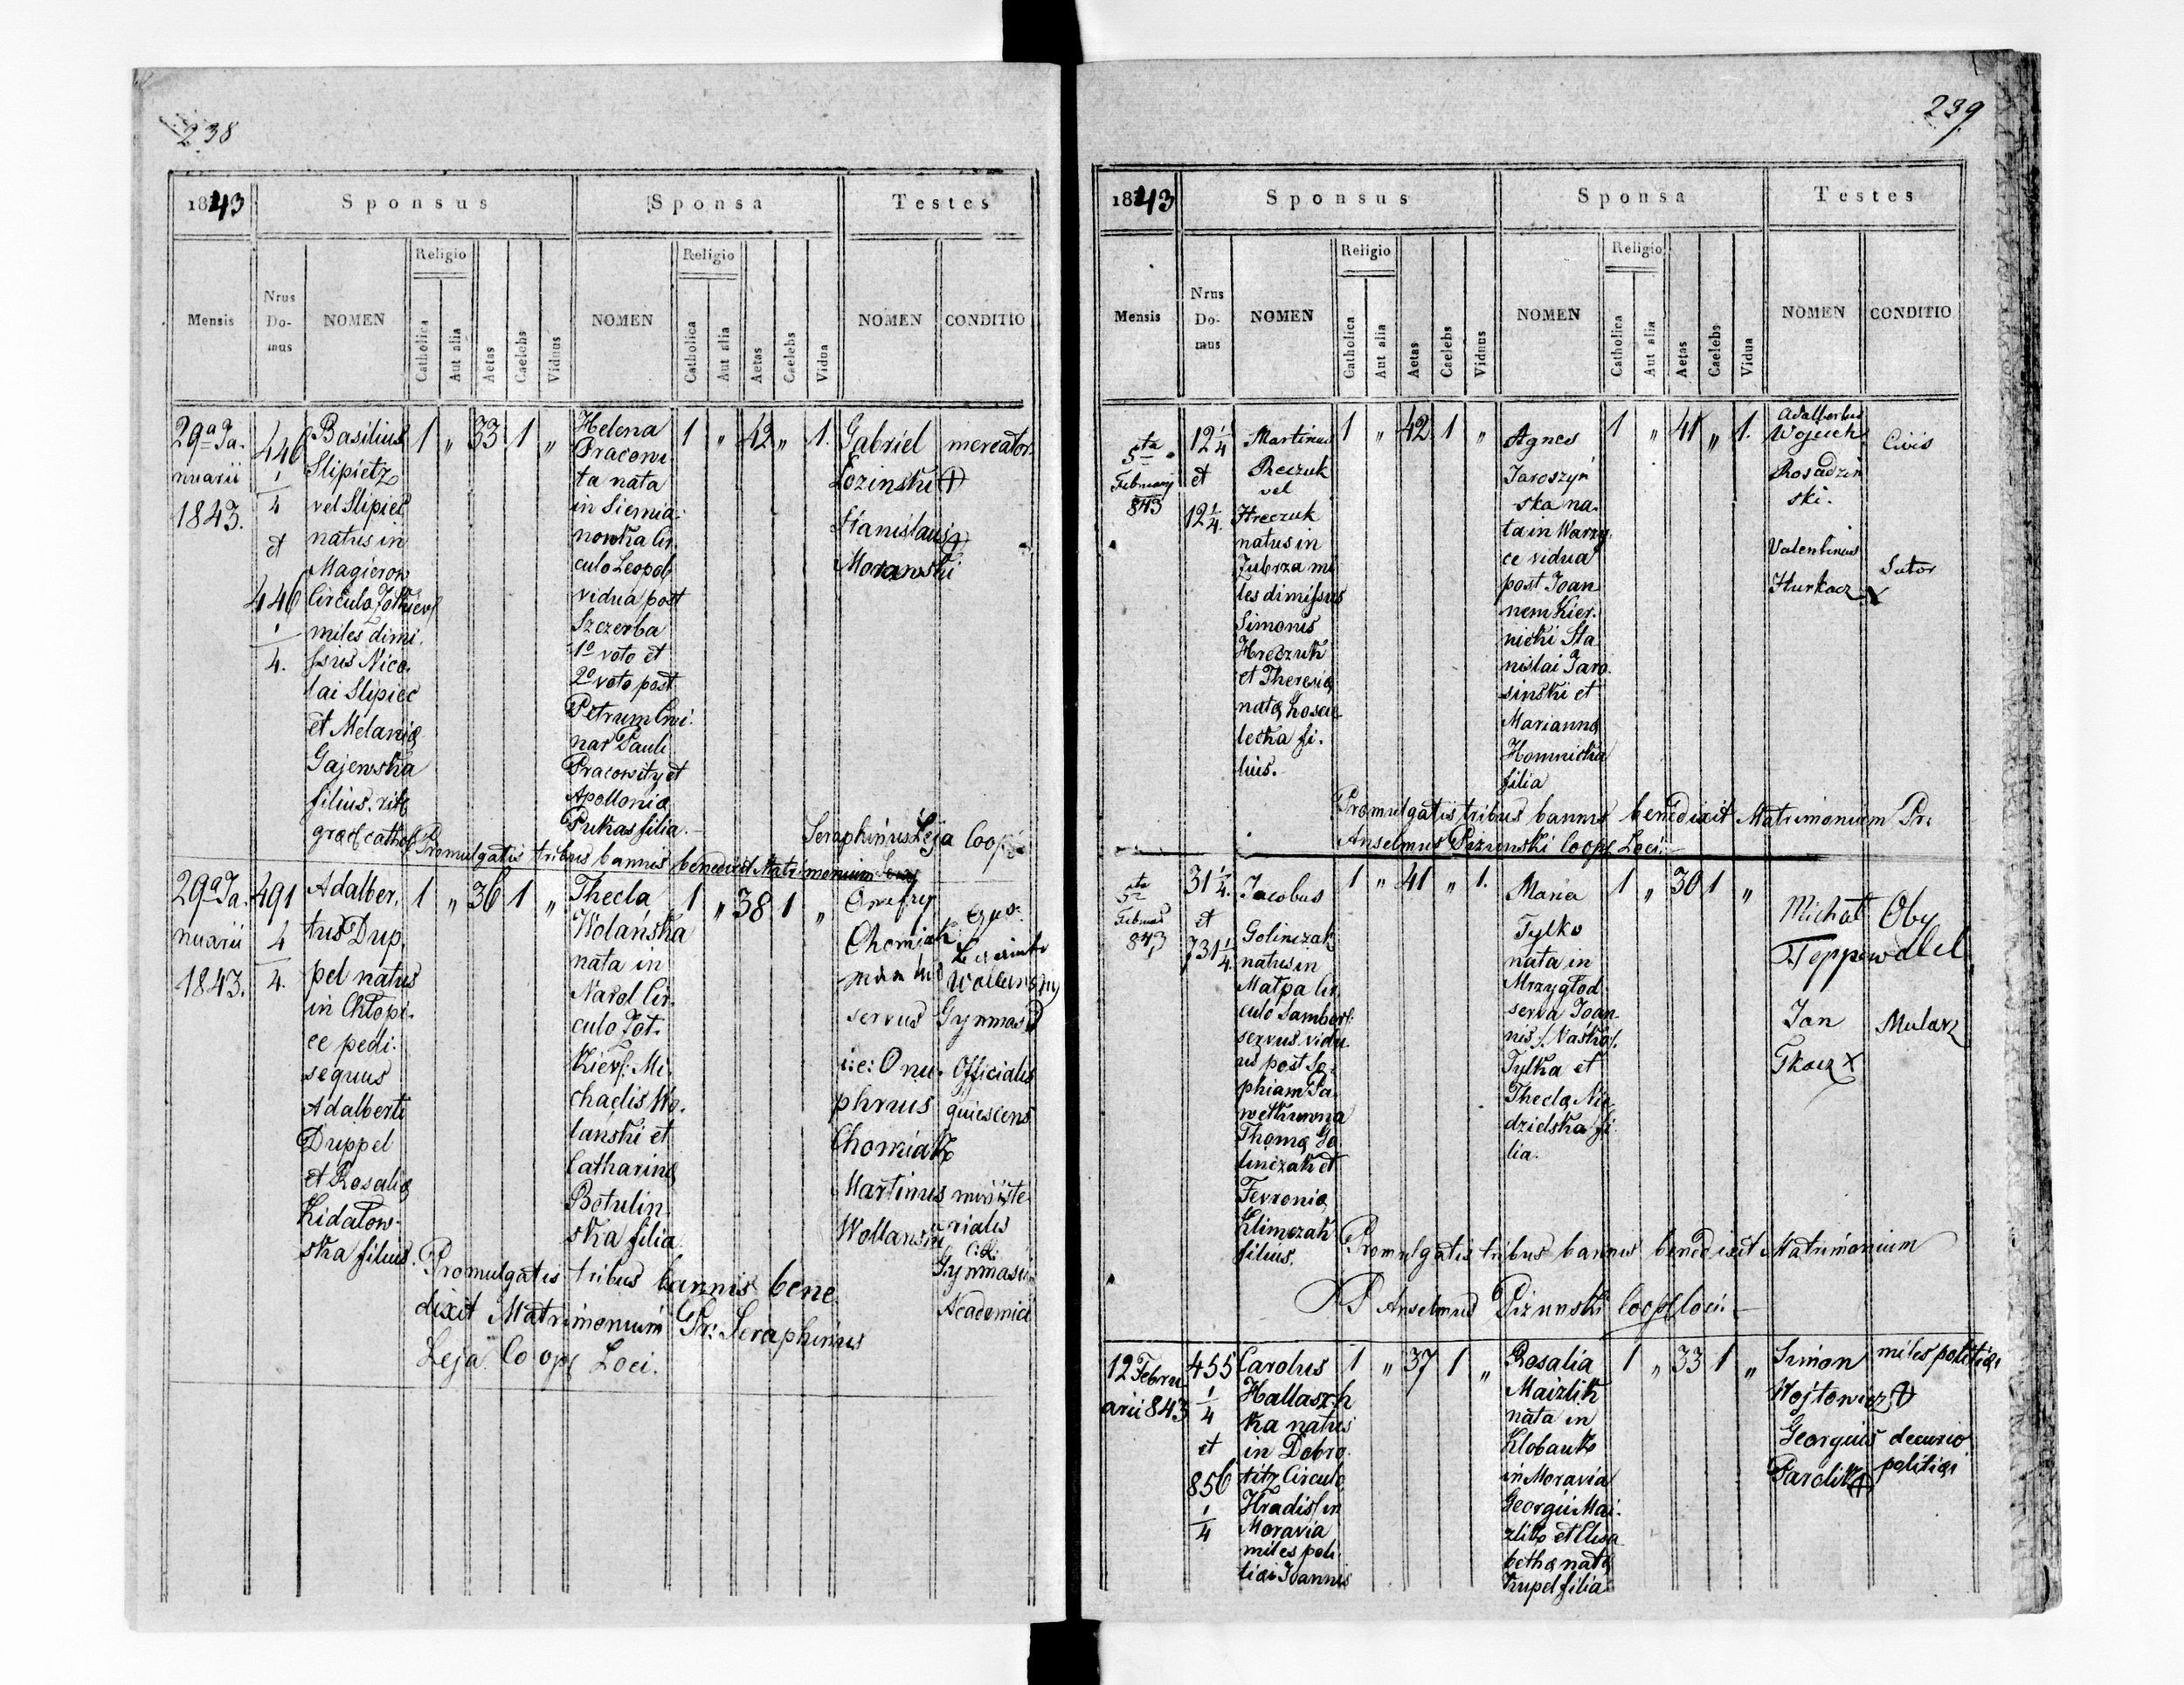 238
1843
Sponsus
Sponsa
Testes
Mensis
Nrus Do- mus
NOMEN
Religio
Catholica
Aut alia
Aetas
Caelebs
Viduus
NOMEN
Religio
Catholica
Aut alia
Aetas
Caelebs
Vidua
NOMEN
CONDITIO
29a Ja-
nuarii
1843.
446
1
4
et
446
1
4.
Basilius
Slipietz
vel Slipiec
natus in
Magierow
Circulo Zolkiew
miles dimi-
ssus Nico-
lai Slipiec
et Melania
Gajewska
filius. rit
graec cathol
1 „ 33 1 „
Helena
Pracowi-
ta nata
in Siemia-
nowka Cir-
culo Leopol
vidua post
Szczerba
1o voto et
2o voto post
Petrum
nar Pauli
Pracowity et
Apollonia
Pukas filia.
1 „ 42 „ 1.
Gabriel
Łozinski
mercator
Stanislaus
Morawski
Promulgatis tribus bannis benedixit Matrimonium
Seraphinus Leja Coop
29a Ja-
nuarii
1843.
491
4
4.
Adalber-
tus Dup-
pel natus
in Chłopi-
ce pedi-
sequus
Adalberti
Duppel
et Rosalia
Kidałow-
ska filius.
1 „ 36 1 „
Thecla
Wolańska
nata in
Narol Cir-
culo Żoł-
kiew: Mi-
chaelis Wo-
lanski et
Catharina
Botulin-
ska filia.
1 „ 38 1 „
Onufry
Chomiak
servus Gymnas
i:e: Onu-
phrius
Chomiak
Officialis
quiescens
Martinus
Wollanski
ministe-
rialis
C:R:
Gymnasii
Academici
Promulgatis tribus bannis bene
dixit Matrimonium Pr: Seraphinus
Leja Coop Loci.
239
1843
Sponsus
Sponsa
Testes
Mensis
Nrus Do- mus
NOMEN
Religio
Catholica
Aut alia
Aetas
Caelebs
Viduus
NOMEN
Religio
Catholica
Aut alia
Aetas
Caelebs
Vidua
NOMEN
CONDITIO
5ta
February
843
12 1/4
et
12 1/4.
Martinus
Reczuk
vel
Hreczuk
natus in
Zubrza mi
les dimissus
Simonis
Hreczuk
et Theresia
nata
lecka fi-
lius.
1 „ 42 1 „
Agnes
Jaroszyń
ska na-
ta in Warzy
ce vidua
post Joan
nem Kier-
nicki Sta
nislai Jaro
sinski et
Marianna
Homnicka
filia
1 „ 41 „ 1.
Adalbertus
Wojcich
Rosadzin
ski.
Civis
Valentinus
Hurkacz X
Sutor
Promulgatis tribus bannis benedixit Matrimonium Pr:
Anselmus Pizunski Coop Loci.
5ta
Februar
843
31 1/4.
et
731 1/4.
Jacobus
Golinczak
natus in
Małpa Cir
culo Sambor
servus vidu
us post So-
phiam Pa-
Thoma Go
linczak et
Fevronia
Klimczak
filius.
1 „ 41 „ 1.
Maria
Tylko
nata in
Mrzygłod
serva Joan
nis
Tylka et
Thecla Nie
dzielska fi-
lia.
1 „ 30 1 „
Michał
Toppe
Oby
watel
Jan
Tkacz X
Mularz
Promulgatis tribus bannis benedixit Matrimonium
P Anselmus Pizunski Coop loci
12 Febru
arii 843
455
1
4
et
856
1
4
Carolus
Hallasch
ka natus
in Dobro-
titz Circulo
Hradisf in
Moravia
miles poli-
tiae Joannis
1 „ 37 1 „
Rosalia
Maizlik
nata in
Klobauk
in Moravia
Georgii Mai-
zlik et Elisa
betha nata
Krupel filia
1 „ 33 1 „
Simon
Wojtowicz
miles politiae
Georgius
Pardik
decurio
politiae